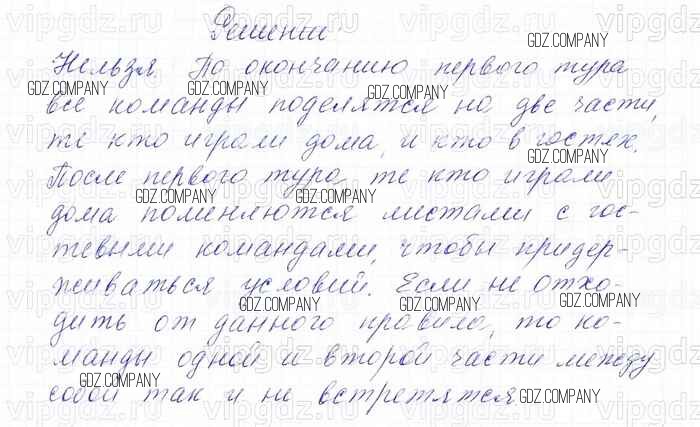 Решение:
GDZ.COMPANY
Нельзя. По окончанию первого тура
GDZ.COMPANY GDZ.COMPANY GDZ.COMPANY
все команды поделятся на две части,
те кто играли дома, и кто в гостях.
GDZ.COMPANY
После первого тура, те кто играли
GDZ.COMPANY GDZ.COMPANY GDZ.COMPANY
дома поменяются местами с гос-
тевыми командами, чтобы придер-
живаться условий. Если не отхо-
GDZ.COMPANY GDZ.COMPANY GDZ.COMPANY
дить от данного правила, то ко-
манды одной и второй части между
GDZ.COMPANY
собой так и не встретятся.
GDZ.COMPANY
vipgdz.ru